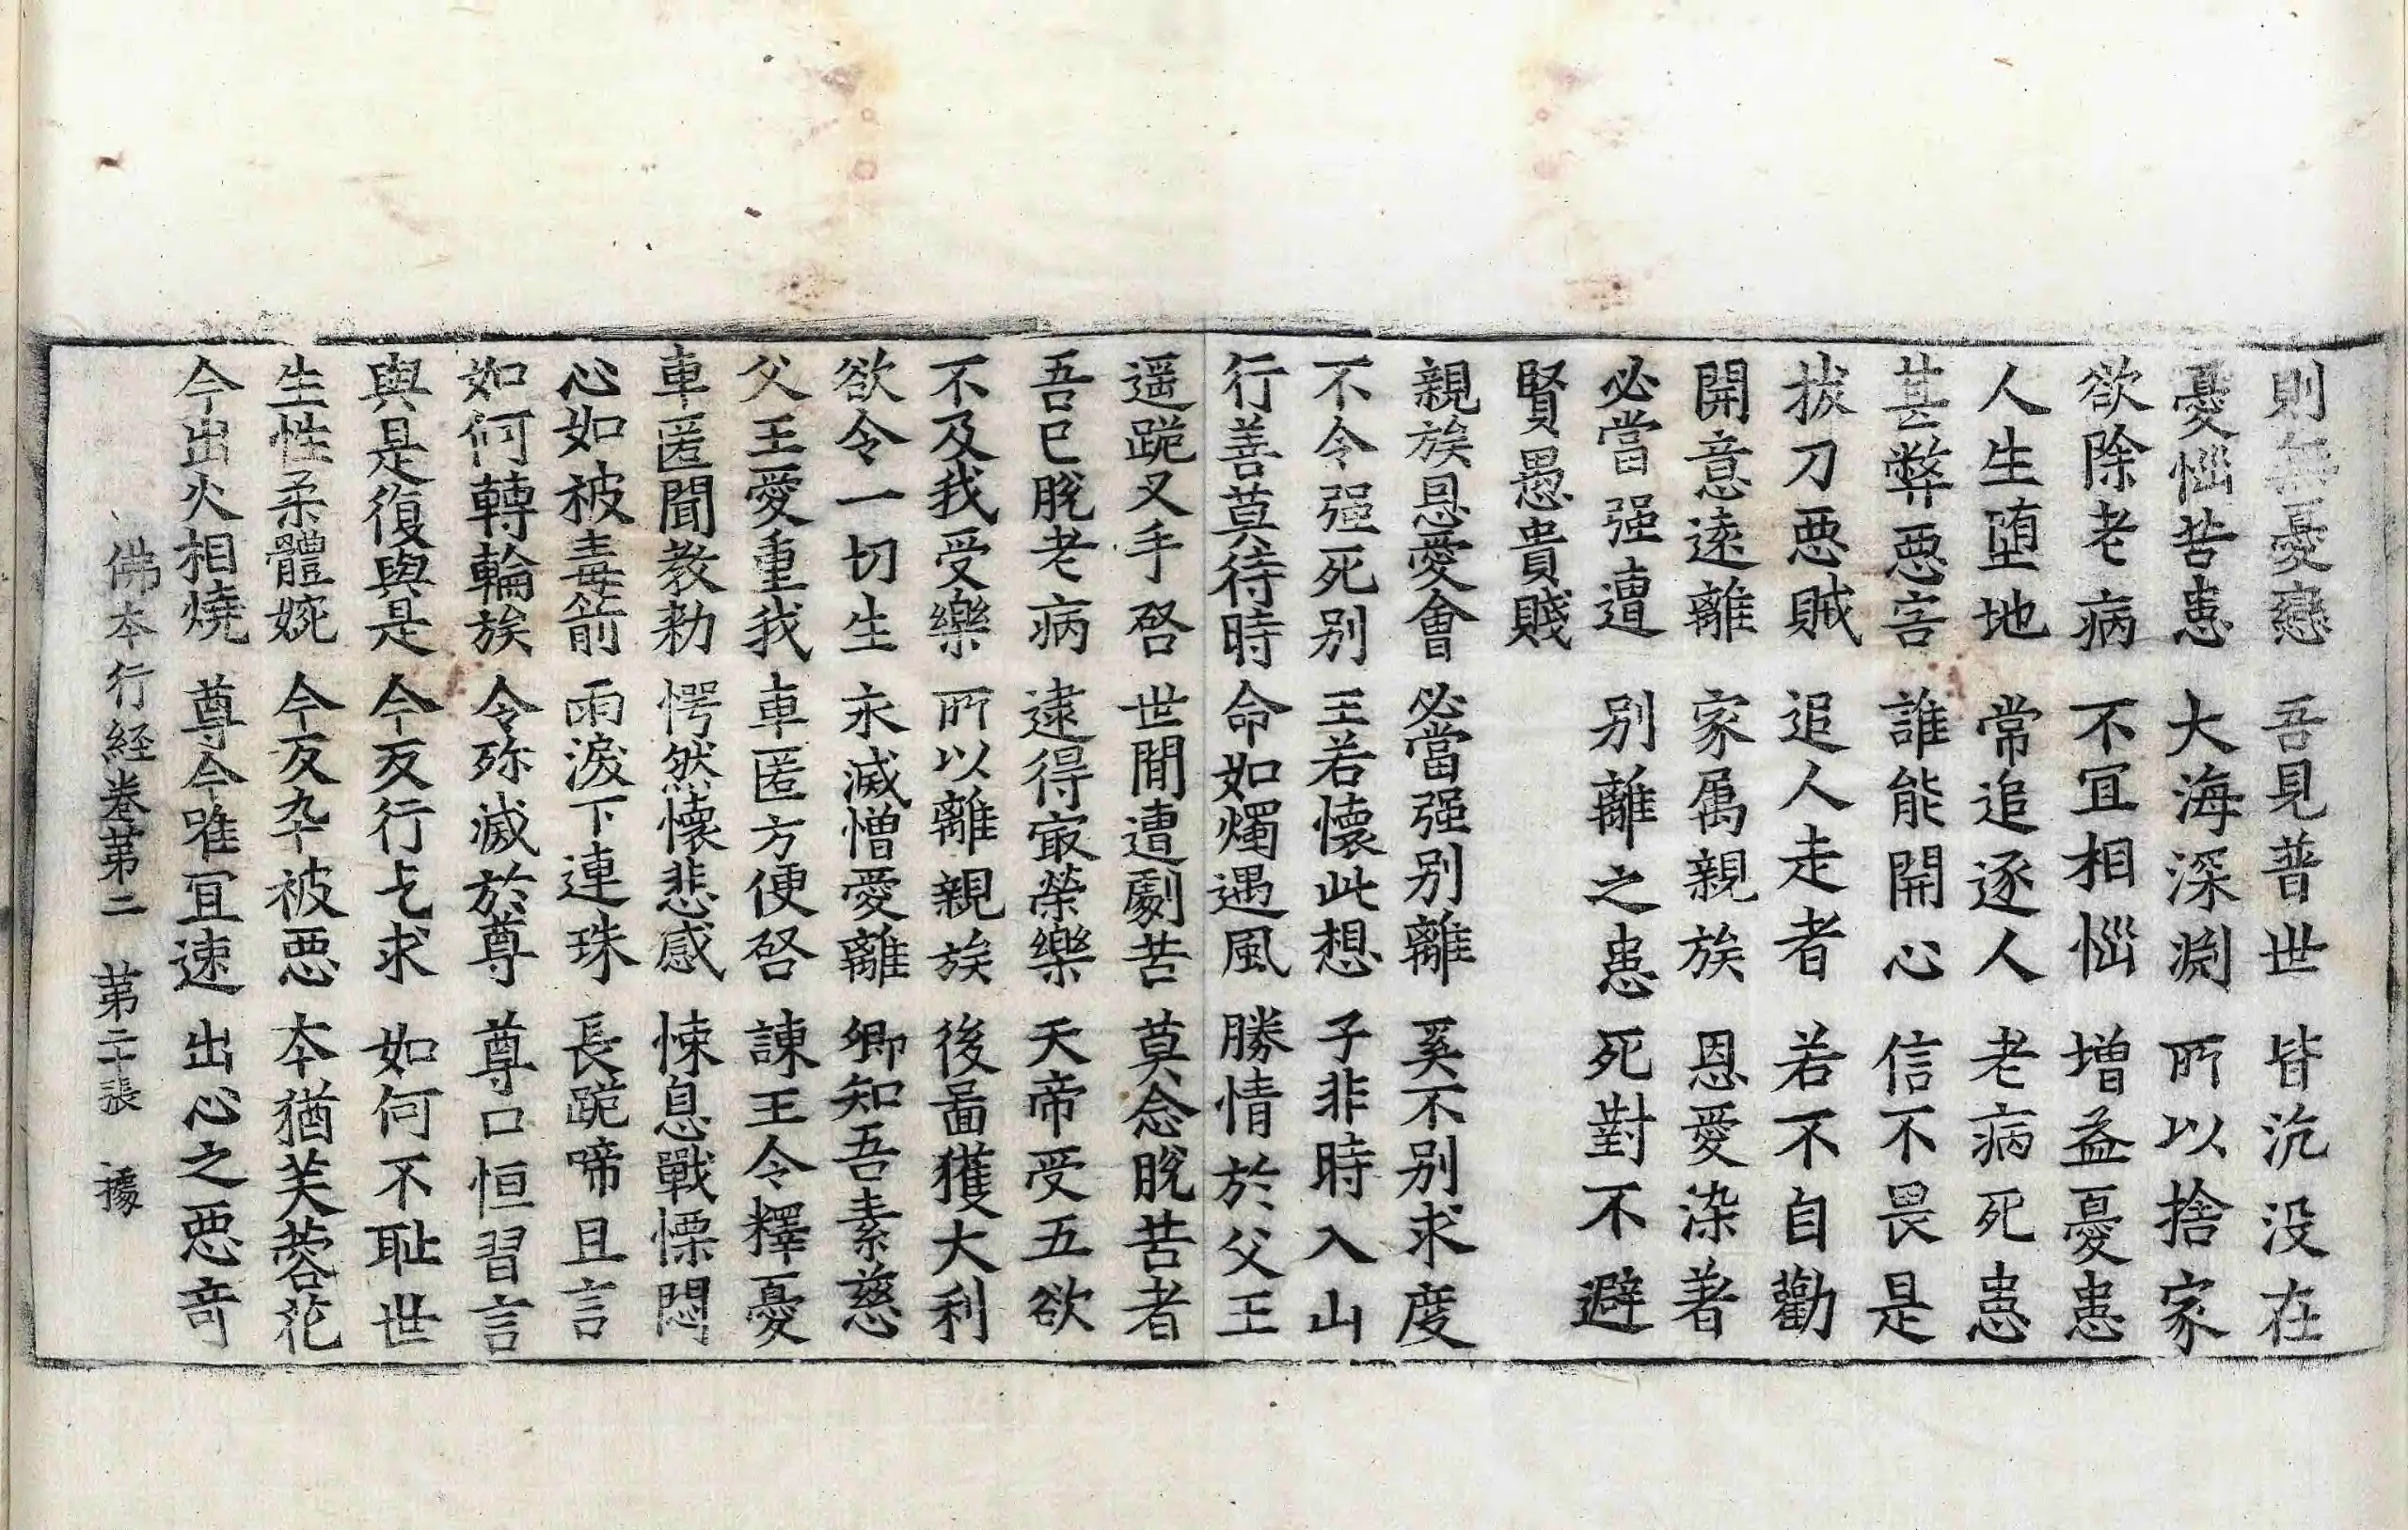 則無憂戀　吾見普世　皆沉没在
憂惱苦患　大海深渕　所以捨家
欲除老病　不冝相惱　增益憂患
人生堕地　常追逐人　老病死患
甚弊惡害　誰能開心　信不畏是
拔刀惡賊　追人走者　若不自勸
開意逺離　家属親族　恩愛染著
必當强遭　别離之患　死對不避
賢愚貴賤
親族恩愛會　必當强别離　奚不别求度
不令强死别　王若懷此想　子非時入山
行善莫待時　命如燭遇風　勝情於父王
遥跪叉手啓　世間遭劇苦　莫念脫苦者
吾已脫老病　逮得㝡榮樂　天帝受五欲
不及我受樂　所以離親族　後啚獲大利
欲令一切生　永滅憎愛離　卿知吾素慈
父王愛重我　車匿方便啓　諫王令釋憂
車匿聞教勑　愕然懷悲感　悚息戰慄悶
心如被毒箭　雨淚下連珠　長跪啼且言
如何轉輪族　令殄滅於尊　尊口恒習言
與是復與是　今反行乞求　如何不耻世
生性柔體婉　今反卒被惡　夲猶芙蓉花
今出火相燒　尊今唯冝速　出心之惡竒
佛夲行経卷苐二　苐二十張　㨿